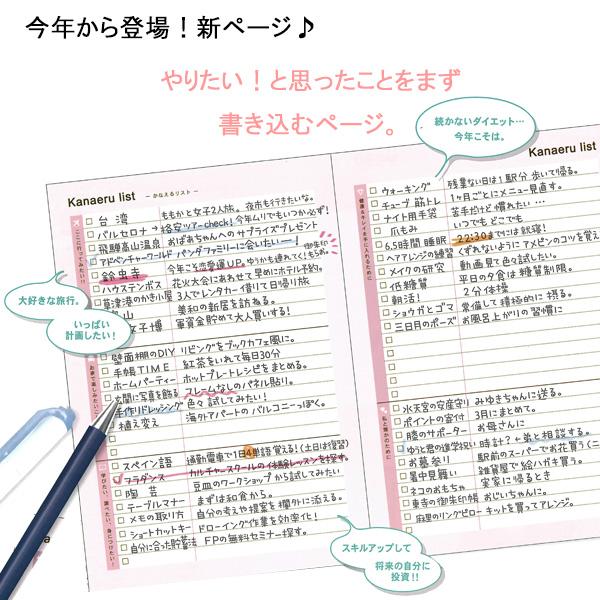 今年から登場！新ページ♪
やりたい！と思ったことをまず
書き込むページ。
続かないダイエット…
今年こそは。
Kanaeru list － かなえるリスト －
ここに行ってみたい!!
台湾 ももかと女子2人旅。夜市も行きたいな。
バルセロナ → 格安ツアーcheck！今年ムリでもいつか必ず！
飛騨高山温泉 おばあちゃんへのサプライズプレゼント
アドベンチャーワールド パンダファミリーに会いたいー！
鈴虫寺 今年こそ恋愛運UP。ゆうかも連れてく！もうお。
ハウステンボス 花火大会にあわせて早めにホテル予約。
草津湯のかき小屋 3人でレンタカー借りて日帰り旅
山 美和の新居を訪ねる。
女子博 軍資金貯めて大人買いする！
大好きな旅行。
いっぱい
計画したい！
お家で楽しみたい
壁面棚のDIY リビングをブックカフェ風に。
手帳TIME 紅茶をいれて毎日30分
ホームパーティー ホットプレートレシピをまとめる。
玄関に写真を飾る フレームなしのパネル貼り。
手作りドレッシング 色々試してみたい。
植え変え 海外アパートのバルコニーっぽく。
学びたい、調べたい、身につけたい！
スペイン語 通勤電車で1日4単語覚える！（土日は復習）
フラダンス カルチャースクールの体験レッスンを探す。
陶芸 豆皿のワークショップから試してみたい
テーブルマナー まずは和食から。
メモの取り方 自分の考えや提案を欄外に添える。
ショートカットキー ドローイング作業を効率化！
自分に合った貯蓄法 FPの無料セミナー探す。
Kanaeru list
健康&キレイを手に入れるために
ウォーキング 残業ない日は1駅分歩いて帰る。
チューブ筋トレ 1ヶ月ごとにメニュー見直す。
ナイト用手袋 苦手だけど慣れたい…
爪もみ いつでもどこでも
6.5時間睡眠 22:30までには就寝！
ヘアアレンジの練習 くずれないようにアメピンのコツを覚え
メイクの研究 動画見て色々試したい。
低糖質 平日の夕食は糖質制限。
朝活！ 2分体操
ショウガとゴマ 常備して積極的に摂る。
三日月のポーズ お風呂上がりの習慣に
私と誰かのために
水天宮の安産守り みゆきちゃんに送る。
ポイントの寄付 3月にまとめて。
膝のサポーター お母さんに
ゆうと君の進学祝い 時計？←弟と相談する。
お墓参り 駅前のスーパーでお花買うくニ
暑中見舞い 雑貨屋で絵ハガキ買う。
ネコのおもちゃ 実家に帰るとき
車寺の御朱印帳 おじいちゃんに。
麻里のリングピロー キットを買ってアレンジ。
スキルアップして
将来の自分に
投資!!